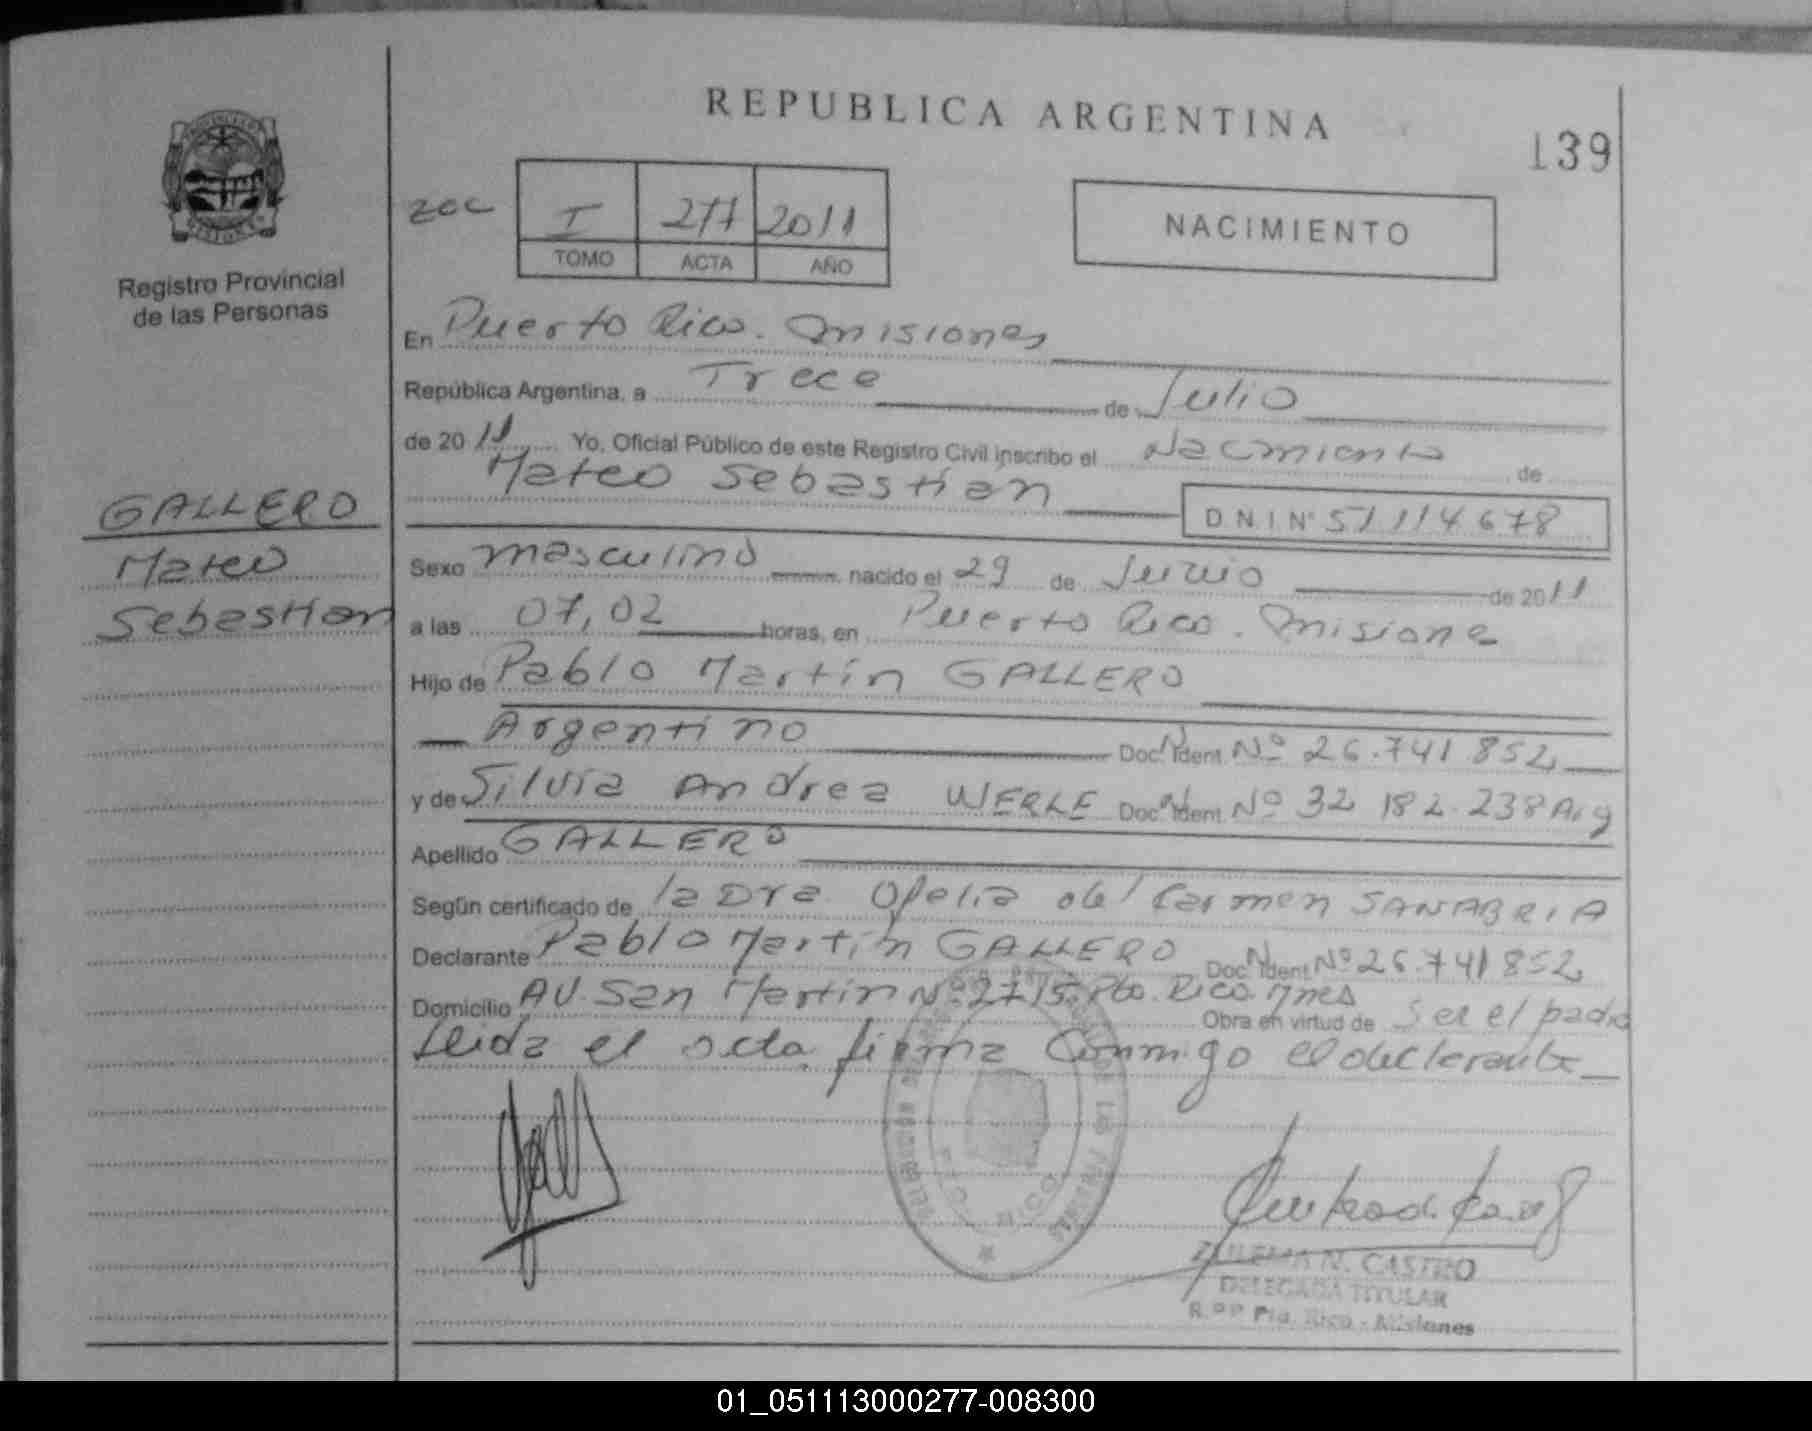 REPUBLICA ARGENTINA
139
Registro Provincial
de las Personas
I 277 2011
TOMO ACTA AÑO
NACIMIENTO
En Puerto Rico. Misiones
República Argentina, a Trece de Julio
de 2011 Yo, Oficial Público de este Registro Civil inscribo el Nacimiento de
Mateo Sebastian D.N.I Nº 51114678
GALLERO
Mateo
Sebastian
Sexo masculino nacido el 29 de Junio de 2011
a las 07,02 horas, en Puerto Rico. Misiones
Hijo de Pablo Martín GALLERO
Argentino Doc. Ident. Nº 26.741.852
y de Silvia Andrea WERLE Doc. Ident. Nº 32 182.238 Arg
Apellido GALLERO
Según certificado de la Dra Ofelia del Carmen SANABRIA
Declarante Pablo Martín GALLERO Doc. Ident. Nº 26.741852
Domicilio AV. San Martin Nº 2715 Pto. Rico. Mnes Obra en virtud de Ser el padre
Leida el acta firma Conmigo el declarante
PTO. RICO
ZULEMA N. CASTRO
DELEGADA TITULAR
R.P.P Pto. Rico - Misiones
01_051113000277-008300